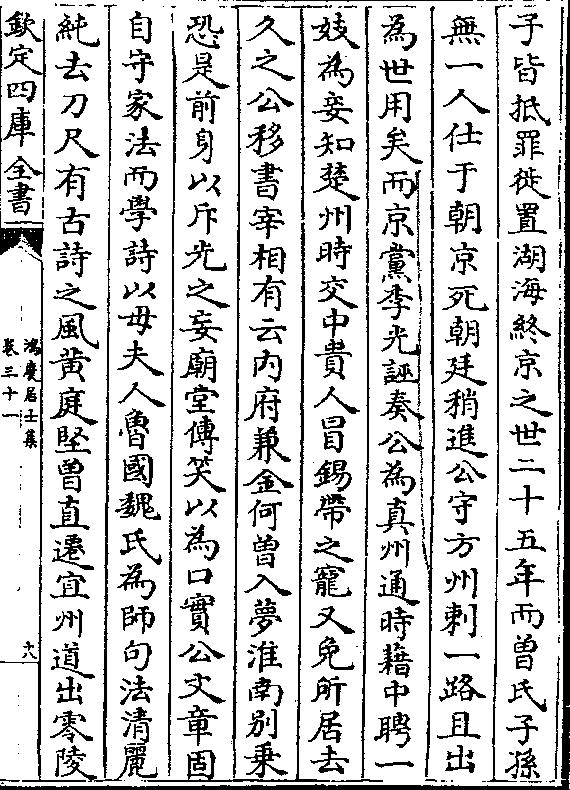 子皆抵罪徙置湖海終京之世二十五年而曽氏子孫
無一人仕于朝京死朝廷稍進公守方州刺一路且出
為世用矣而京黨李光誣奏公為真州通時藉中聘一
妓為妾知楚州時交中貴人冒錫帶之寵又免所居去
久之公移書宰相有云内府兼金何曽入夢淮南别乗
恐是前身以斥光之妄廟堂傳笑以為口實公文章固
自守家法而學詩以母夫人魯國魏氏為師句法清麗
純去刀尺有古詩之風黄庭堅魯直遷宜州道出零陵
欽定四庫全書
鴻慶居士集
卷三十一
六